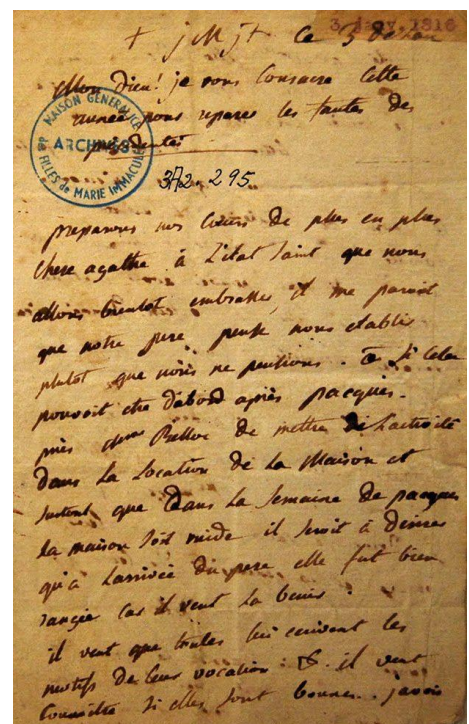 3 janv. 1816
+ jmjt ce 3 de l'an
Mon Dieu! je vous consacre cette
année pour reparer les fautes des
précédentes
MAISON GÉNÉRALICE
ARCHIVES
FILLES de MARIE IMMACULÉE
372. 295
preparons nos cœurs de plus en plus
chere agathe à l'état saint que nous
allons bientot embrasser, il me paroit
que notre pere pense nous etablir
plutot que nous ne pensions. si cela
pouvoit etre dabord après pacques.
priés Belloc de mettre de lactivité
dans la location de la Maison et
surtout que dans la semaine de pacques
la maison soit vuide il seroit à désirer
qu'a larrivée du pere elle fut bien
rangée car il veut la benir:
il veut que toutes lui ecrivent les
motifs de leur vocation: & il veut
Connoitre si elles sont bonnes. javois